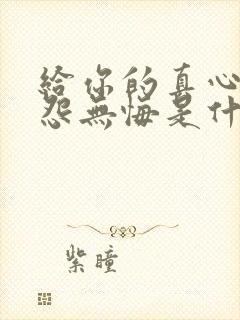 給你的真心
怨無悔是什
紫瞳